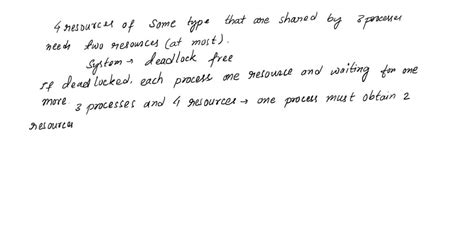 4 resources of some type that are shared by 3 processes
needs two resources (at most).
System → deadlock free
If deadlocked, each process one resource and waiting for one
more 3 processes and 4 resources → one process must obtain 2
resources